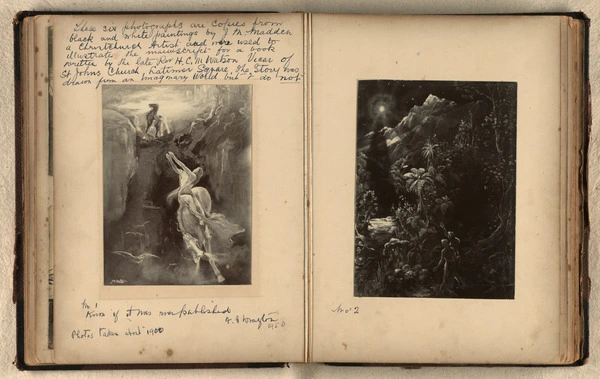 These six photographs are copies from
black and white paintings by J. M. Madden
a Christchurch Artist and were used to
illustrate the manuscript for a book
written by the late Rev H. C. M. Watson Vicar of
St Johns Church, Latimer Square. The Story was
drawn from an Imaginary World but I do not
No 1
Know if it was ever published
1950
Photos taken abt 1900
No 2